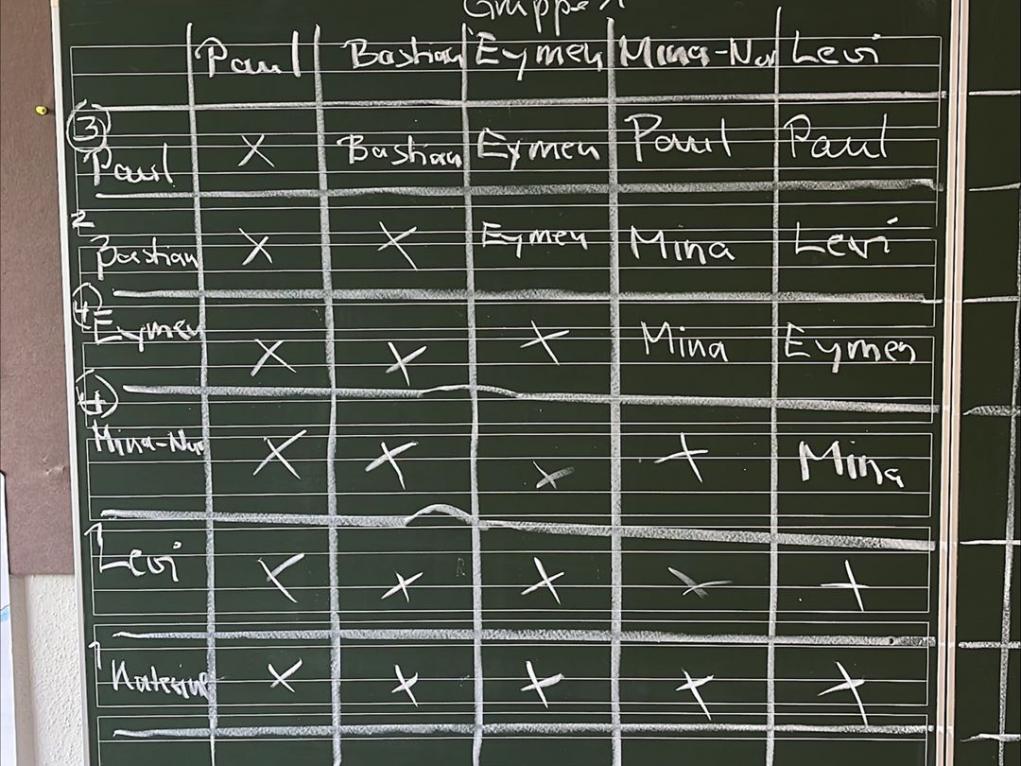 Gruppe 1
Paul Bastian Eymen Mina-Nur Levi
3
Paul X Bastian Eymen Paul Paul
2
Bastian X X Eymen Mina Levi
4
Eymen X X X Mina Eymen
4
Mina-Nur X X X X Mina
1
Levi X X X X X
1
X X X X X